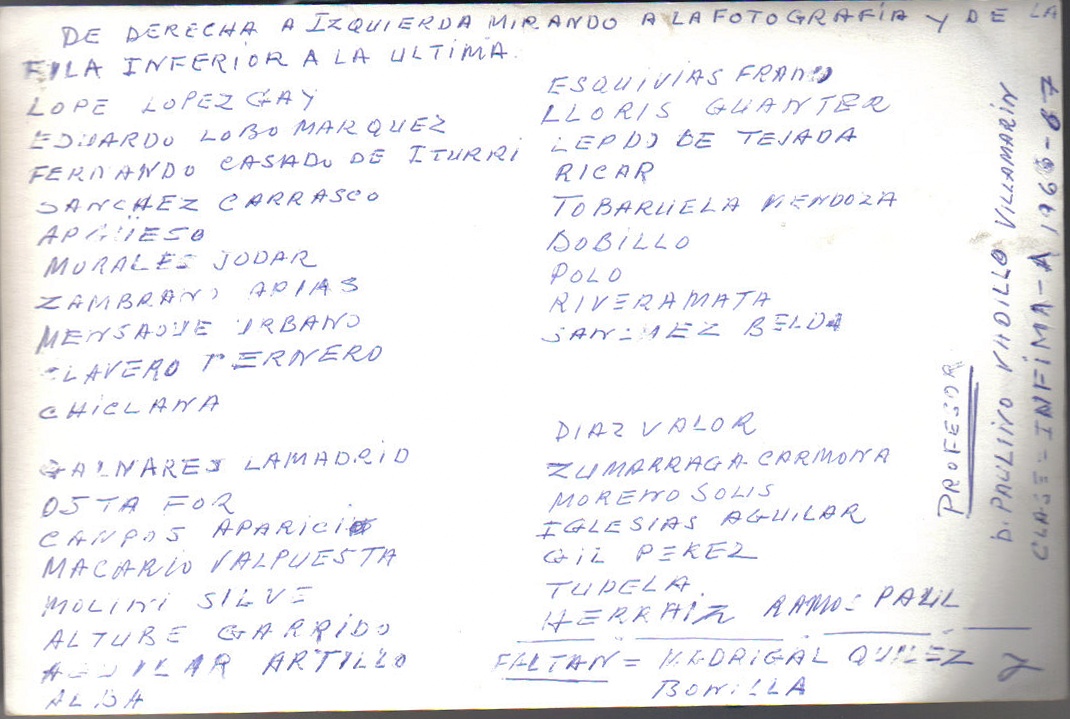 DE DERECHA A IZQUIERDA MIRANDO A LA FOTOGRAFÍA Y DE LA
FILA INFERIOR A LA ULTIMA.
LOPE LOPEZ GAY
EDUARDO LOBO MARQUEZ
FERNANDO CASADO DE ITURRI
SANCHEZ CARRASCO
MORALES JODAR
ZAMBRANO ARIAS
MENSAQUE URBANO
CLAVERO
CHICLANA
ESQUIVIAS FRANCO
LLORIS GUANTER
DE TEJADA
RICAR
TOBARUELA MENDOZA
BOBILLO
POLO
RIVERA MATA
SANCHEZ BELDA
GALNARES LAMADRID
OSTA FOR
CAMPOS APARICIO
MACARIO VALPUESTA
MOLINI SILVE
ALTUBE GARRIDO
AGUILAR ARTILLO
ALBA
DIAZ VALOR
ZUMARRAGA-CARMONA
MORENO SOLIS
IGLESIAS AGUILAR
GIL PEREZ
TUDELA.
HERRAIZ RAMOS PAUL
FALTAN = MADRIGAL QUILEZ Y
BONILLA
PROFESOR
D. PAULINO VADILLO VILLAMARÍN
CLASE = INFIMA-A 1966-67